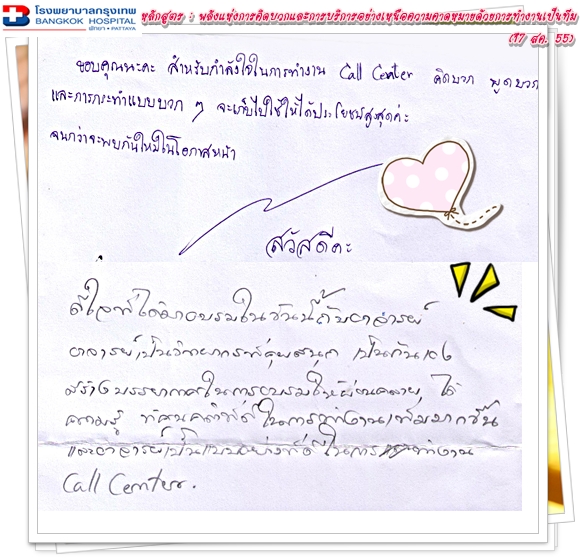 โรงพยาบาลกรุงเทพ
BANGKOK HOSPITAL
พัทยา • PATTAYA
หลักสูตร : พลังแห่งการคิดบวกและการบริการอย่างเหนือความคาดหมายด้วยการทำงานเป็นทีม
(17 สค. 55)
ขอบคุณนะคะ สำหรับกำลังใจในการทำงาน Call Center คิดบวก พูดบวก
และการกระทำแบบบวก ๆ จะเก็บไปใช้ให้ได้ประโยชน์สูงสุดค่ะ
จนกว่าจะพบกันใหม่ในโอกาสหน้า
สวัสดีคะ
ดีใจที่ได้มาอบรมในวันนี้กับอาจารย์
อาจารย์เป็นวิทยากรที่คุยสนุก เป็นกันเอง
สร้างบรรยากาศในการอบรมให้ผ่อนคลาย ได้
ความรู้ ทัศนคติที่ดีในการทำงานเพิ่มมากขึ้น
และอาจารย์เป็นแบบอย่างที่ดีในการทำงาน
Call Center.